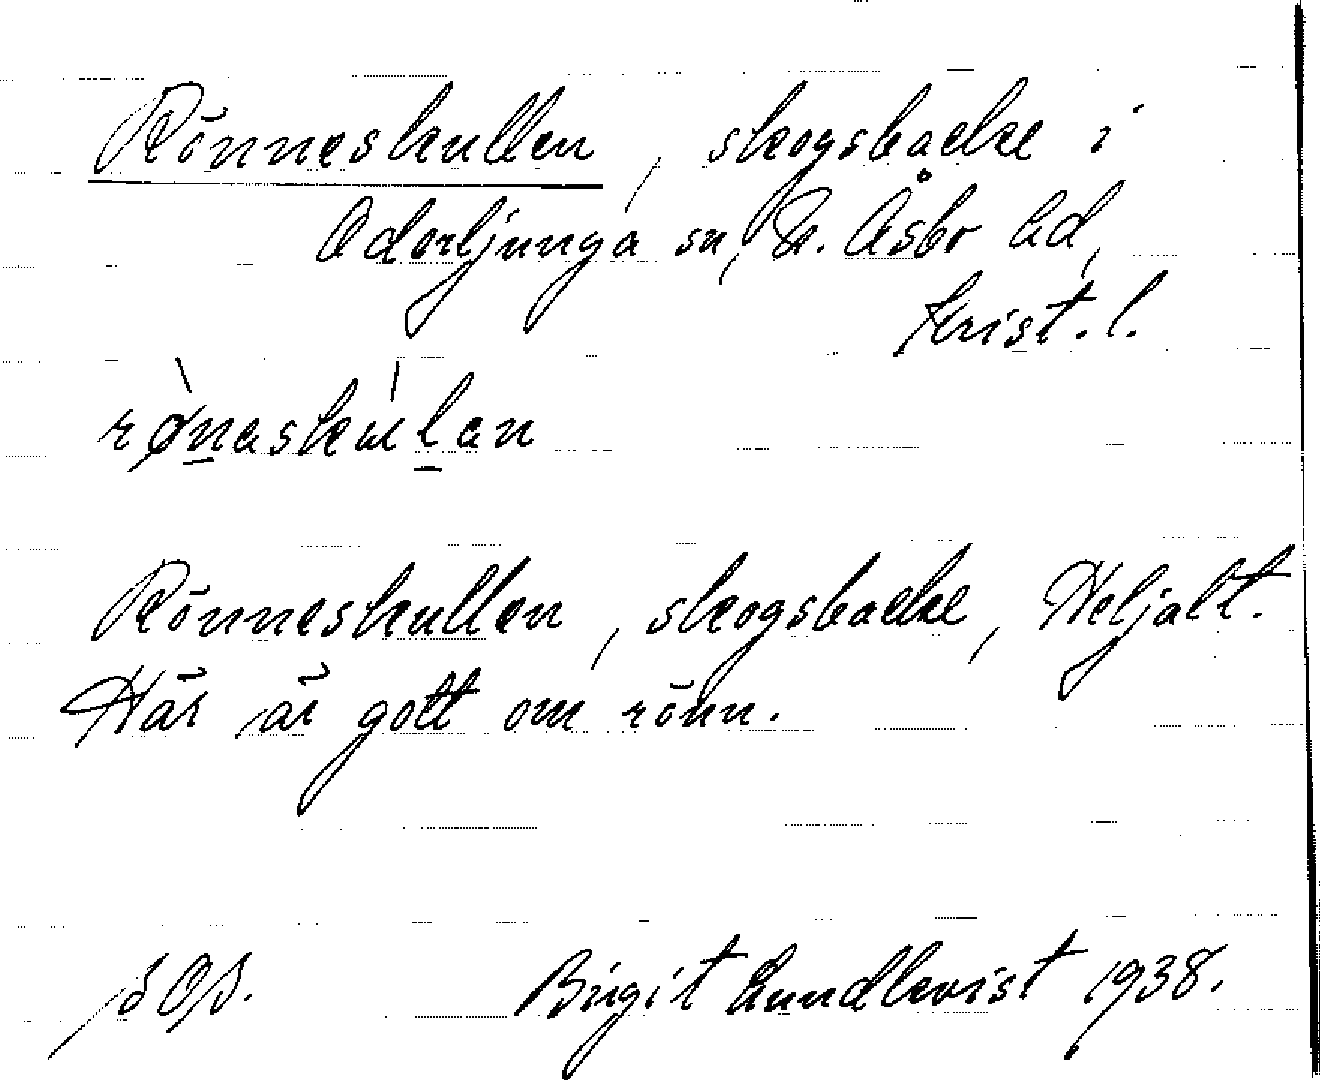 Rönneskullen, skogsbacke i
Oderljunga sn, N. Åsbo hd,
Krist. l.
Rönneskullen, skogsbacke, Heljalt.
Här är gott om rönn.
SOS. Birgit Lundkvist 1938.